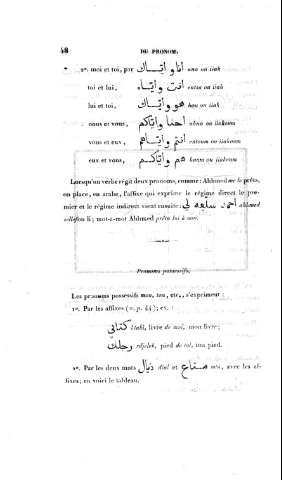 48 DU PRONOM.
2°. moi et toi, par انا و ايّاك ana ou iiak
toi et lui, انت و ايّاه enta ou iiah
lui et toi, هو و ايّاك hou ou iiak
nous et vous, احنا و ايّاكم ahna ou iiakoum
vous et eux, انتم و ايّاهم entoum ou iiahoum
eux et vous, هم و ايّاكم houm ou iiakoum
Lorsqu'un verbe régit deux pronoms, comme : Ahhmed me le prêta,
on place, en arabe, l'affixe qui exprime le régime direct le pre-
mier et le régime indirect vient ensuite : احمد سلفه لي ahhmed
sellefou li; mot-à-mot Ahhmed prêta lui à moi.
Pronoms possessifs.
Les pronoms possessifs mon, ton, etc., s'expriment :
1°. Par les affixes (v. p. 44); ex. :
كتابي ktabi, livre de moi, mon livre;
رجلك redjelek, pied de toi, ton pied.
2°. Par les deux mots ديال dial et متاع mta, avec les af-
fixes; en voici le tableau.